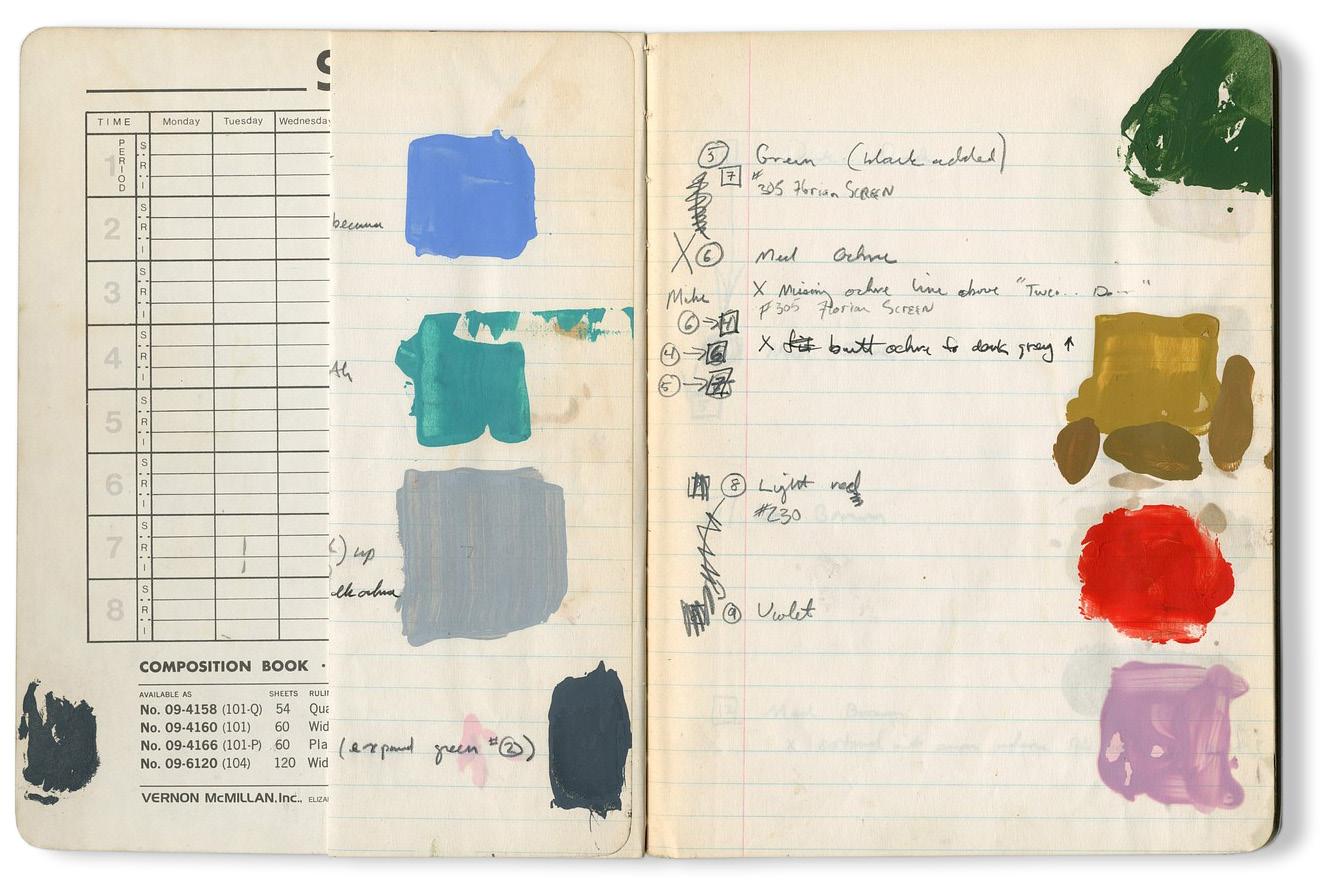 S
TIME Monday Tuesday Wednesday
1 PERIOD S R I
2 S R I
3 S R I
4 S R I
5 S R I
6 S R I
7 S R I
8 S R I
COMPOSITION BOOK ·
AVAILABLE AS SHEETS RULIN
No. 09-4158 (101-Q) 54 Qua
No. 09-4160 (101) 60 Wid
No. 09-4166 (101-P) 60 Pla
No. 09-6120 (104) 120 Wid
VERNON McMILLAN, Inc., ELIZA
) up
(expand green #2)
5 Green (black added)
7 #305 Florian SCREEN
X 6 Med Ochre
Make X Missing ochre line above "Two...
#305 Florian SCREEN
6 →
4 → X butt ochre to dark grey ↑
5 →
8 Light red
#230
9 Violet
Med Brown